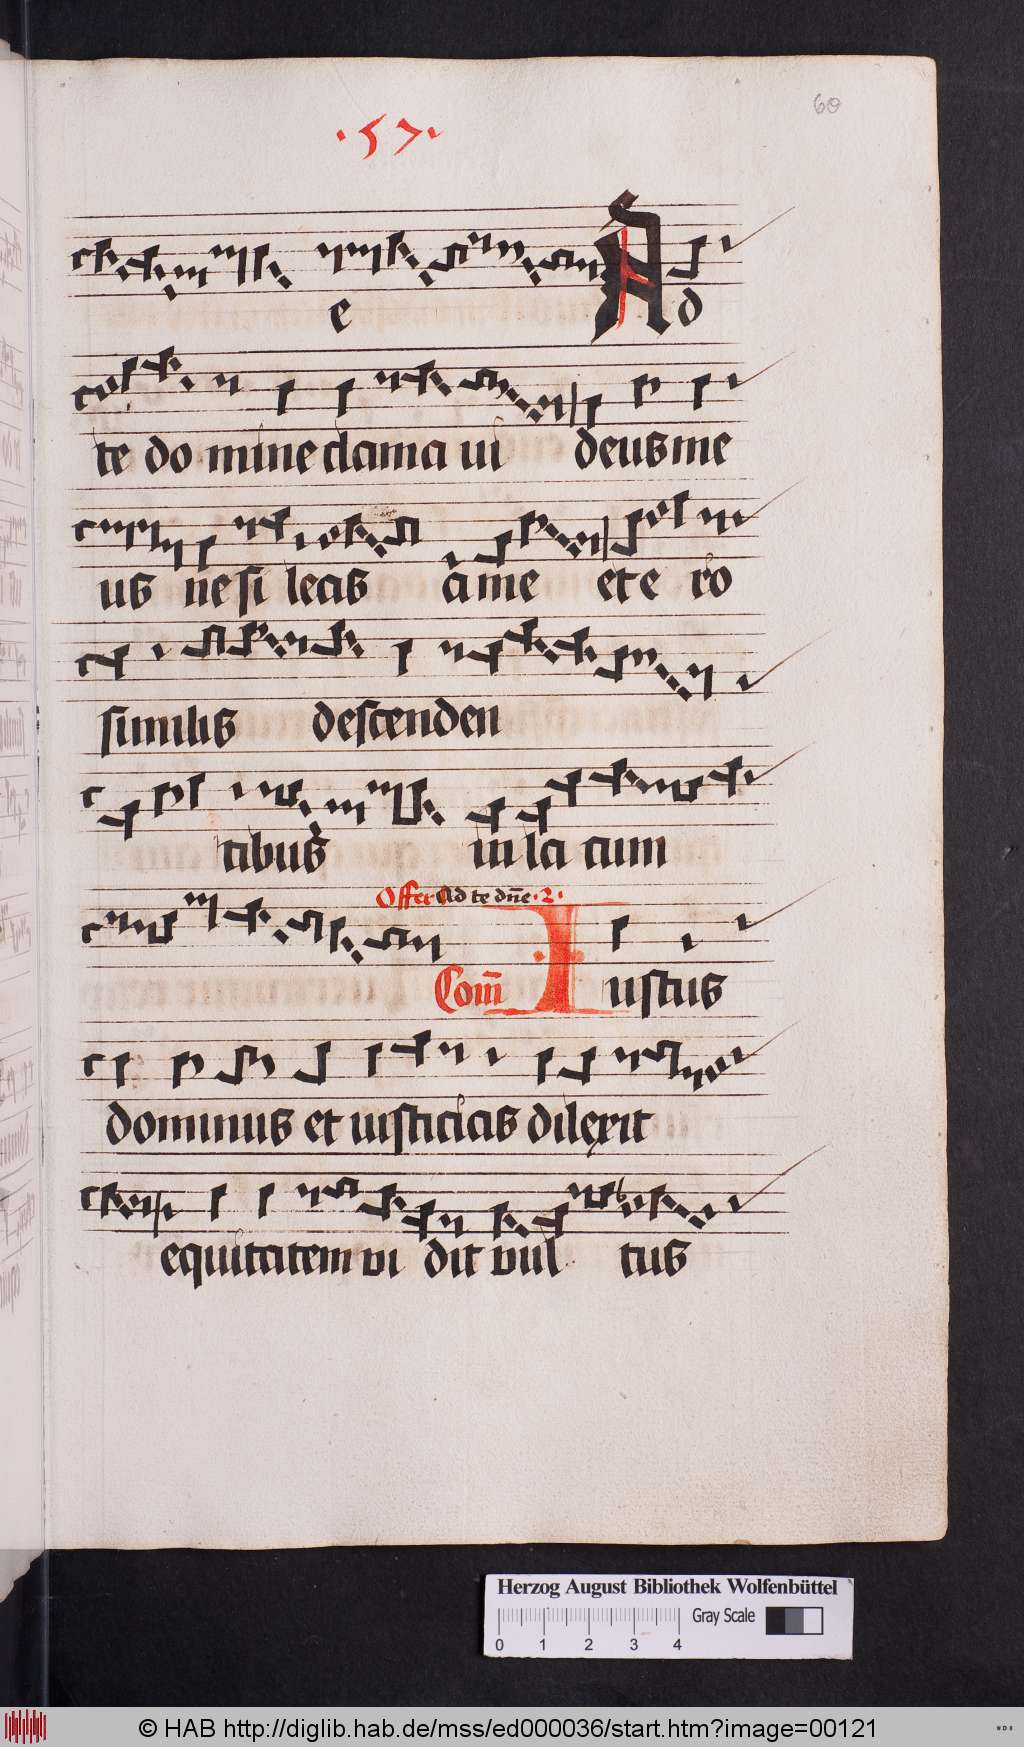 60
·57·
e Ad
te do mine clama ui deus me
us ne si leas a me et e ro
similis descenden
tibus in la cum
Offer Ad te dn̄e · 2 ·
Com̄ Iustus
dominus et iusticias dilexit
equitatem vi dit vul tus
Herzog August Bibliothek Wolfenbüttel
Gray Scale
0 1 2 3 4
© HAB http://diglib.hab.de/mss/ed000036/start.htm?image=00121